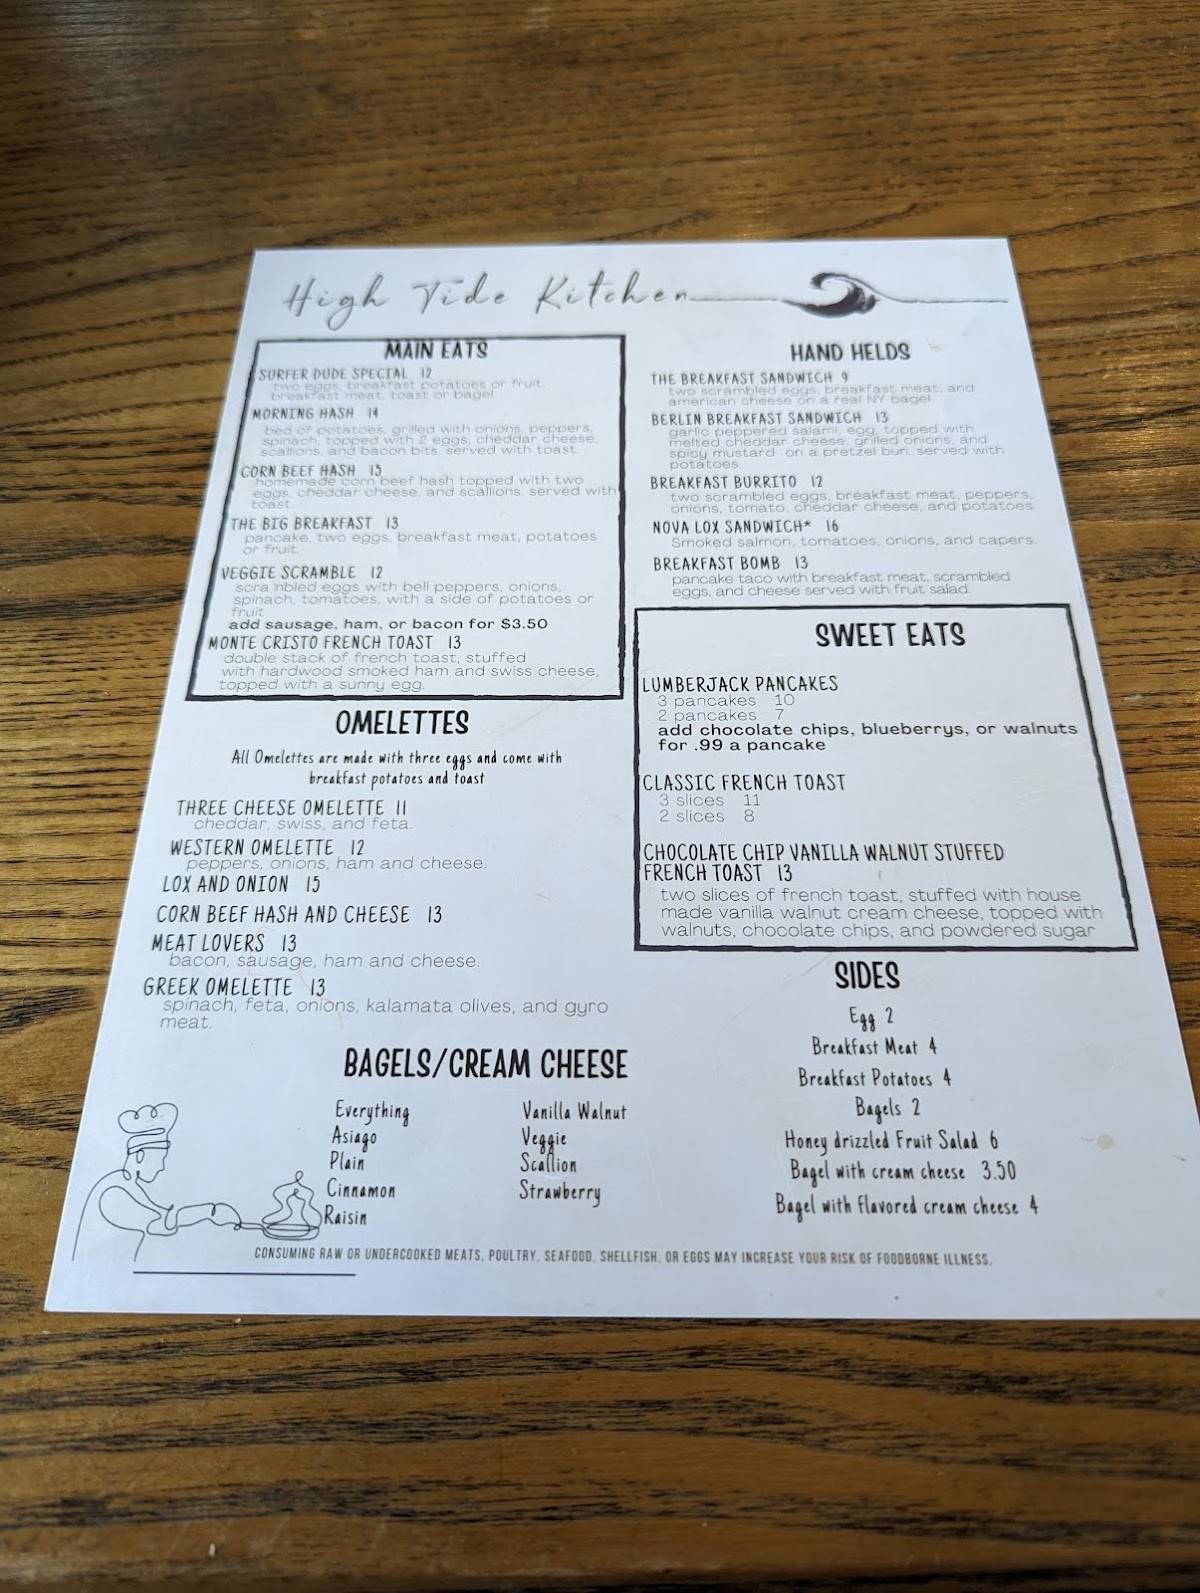 High Tide Kitchen
MAIN EATS
SURFER DUDE SPECIAL 12
two eggs, breakfast potatoes or fruit,
breakfast meat, toast or bagel
MORNING HASH 14
bed of potatoes, grilled with onions, peppers,
spinach, topped with 2 eggs, cheddar cheese,
scallions, and bacon bits. served with toast.
CORN BEEF HASH 15
homemade corn beef hash topped with two
eggs, cheddar cheese, and scallions. served with
toast.
THE BIG BREAKFAST 13
pancake, two eggs, breakfast meat, potatoes
or fruit.
VEGGIE SCRAMBLE 12
scrambled eggs with bell peppers, onions,
spinach, tomatoes, with a side of potatoes or
fruit
add sausage, ham, or bacon for $3.50
MONTE CRISTO FRENCH TOAST 13
double stack of french toast, stuffed
with hardwood smoked ham and swiss cheese,
topped with a sunny egg.
OMELETTES
All Omelettes are made with three eggs and come with
breakfast potatoes and toast
THREE CHEESE OMELETTE 11
cheddar, swiss, and feta.
WESTERN OMELETTE 12
peppers, onions, ham and cheese.
LOX AND ONION 15
CORN BEEF HASH AND CHEESE 13
MEAT LOVERS 13
bacon, sausage, ham and cheese.
GREEK OMELETTE 13
spinach, feta, onions, kalamata olives, and gyro
meat.
HAND HELDS
THE BREAKFAST SANDWICH 9
two scrambled eggs, breakfast meat, and
american cheese on a real NY bagel
BERLIN BREAKFAST SANDWICH 13
garlic peppered salami, egg, topped with
melted cheddar cheese, grilled onions, and
spicy mustard on a pretzel bun. served with
potatoes.
BREAKFAST BURRITO 12
two scrambled eggs, breakfast meat, peppers,
onions, tomato, cheddar cheese, and potatoes.
NOVA LOX SANDWICH* 16
Smoked salmon, tomatoes, onions, and capers.
BREAKFAST BOMB 13
pancake taco with breakfast meat, scrambled
eggs, and cheese served with fruit salad.
SWEET EATS
LUMBERJACK PANCAKES
3 pancakes 10
2 pancakes 7
add chocolate chips, blueberrys, or walnuts
for .99 a pancake
CLASSIC FRENCH TOAST
3 slices 11
2 slices 8
CHOCOLATE CHIP VANILLA WALNUT STUFFED
FRENCH TOAST 13
two slices of french toast, stuffed with house
made vanilla walnut cream cheese, topped with
walnuts, chocolate chips, and powdered sugar
BAGELS/CREAM CHEESE
Everything
Asiago
Plain
Cinnamon
Raisin
Vanilla Walnut
Veggie
Scallion
Strawberry
SIDES
Egg 2
Breakfast Meat 4
Breakfast Potatoes 4
Bagels 2
Honey drizzled Fruit Salad 6
Bagel with cream cheese 3.50
Bagel with flavored cream cheese 4
CONSUMING RAW OR UNDERCOOKED MEATS, POULTRY, SEAFOOD, SHELLFISH, OR EGGS MAY INCREASE YOUR RISK OF FOODBORNE ILLNESS.